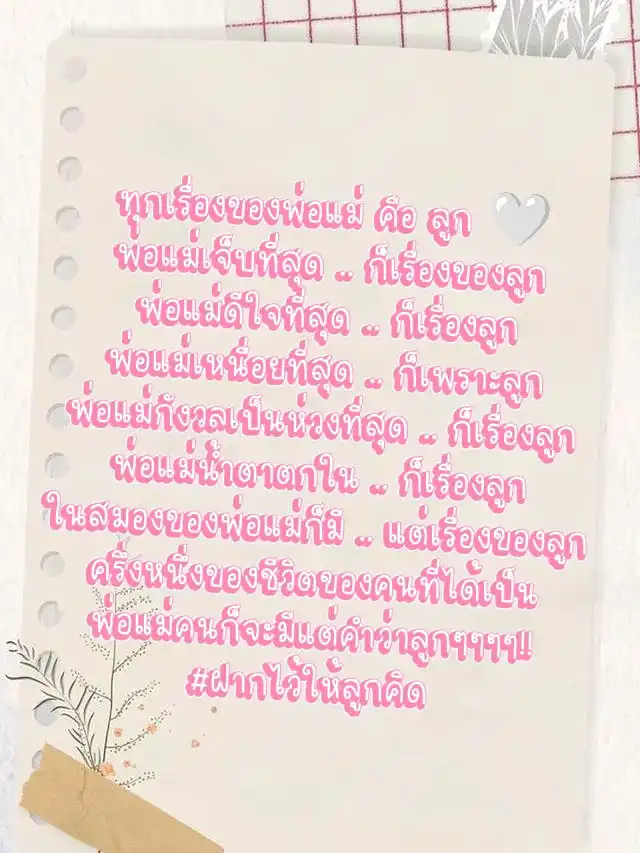 ทุกเรื่องของพ่อแม่ คือ ลูก 🤍
พ่อแม่เจ็บที่สุด .. ก็เรื่องของลูก
พ่อแม่ดีใจที่สุด .. ก็เรื่องลูก
พ่อแม่เหนื่อยที่สุด .. ก็เพราะลูก
พ่อแม่กังวลเป็นห่วงที่สุด .. ก็เรื่องลูก
พ่อแม่น้ำตาตกใน .. ก็เรื่องลูก
ในสมองของพ่อแม่ก็มี .. แต่เรื่องของลูก
ครึ่งหนึ่งของชีวิตของคนที่ได้เป็น
พ่อแม่คนก็จะมีแต่คำว่าลูกๆๆๆๆ!!
#ฝากไว้ให้ลูกคิด